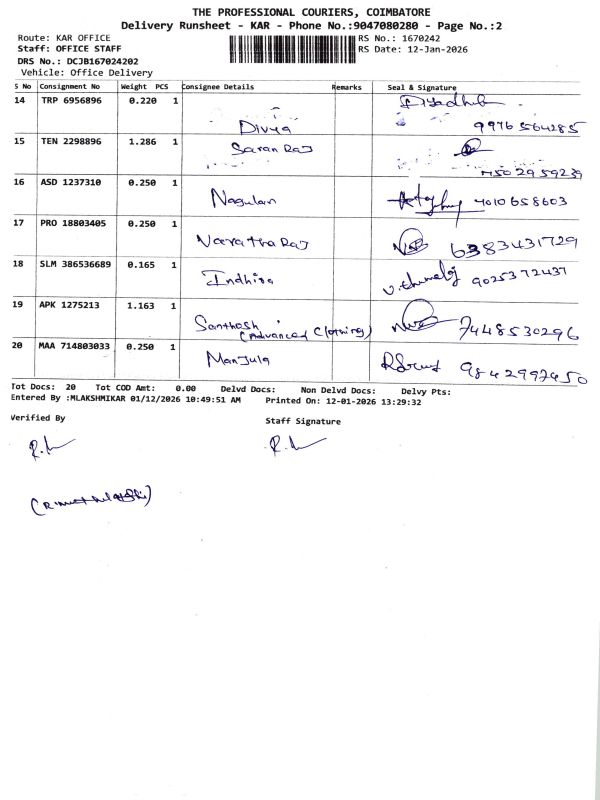 THE PROFESSIONAL COURIERS, COIMBATORE
Delivery Runsheet - KAR - Phone No.:9047080280 - Page No.:2
Route: KAR OFFICE
RS No.: 1670242
Staff: OFFICE STAFF
RS Date: 12-Jan-2026
DRS No.: DCJB167024202
Vehicle: Office Delivery
S No Consignment No Weight PCS Consignee Details Remarks Seal & Signature
14 TRP 6956896 0.220 1 Divya 9976564285
15 TEN 2298896 1.286 1 Saran Raj
16 ASD 1237310 0.250 1 Nagulan 4010658603
17 PRO 18803405 0.250 1 Neeratha Raj 6383431729
18 SLM 386536689 0.165 1 Indhira 9025372437
19 APK 1275213 1.163 1 Santhosh (Advanced Clothing) 7448530296
20 MAA 714803033 0.250 1 Manjula 9842997450
Tot Docs: 20 Tot COD Amt: 0.00 Delvd Docs: Non Delvd Docs: Delvy Pts:
Entered By :MLAKSHMIKAR 01/12/2026 10:49:51 AM Printed On: 12-01-2026 13:29:32
Verified By
Staff Signature